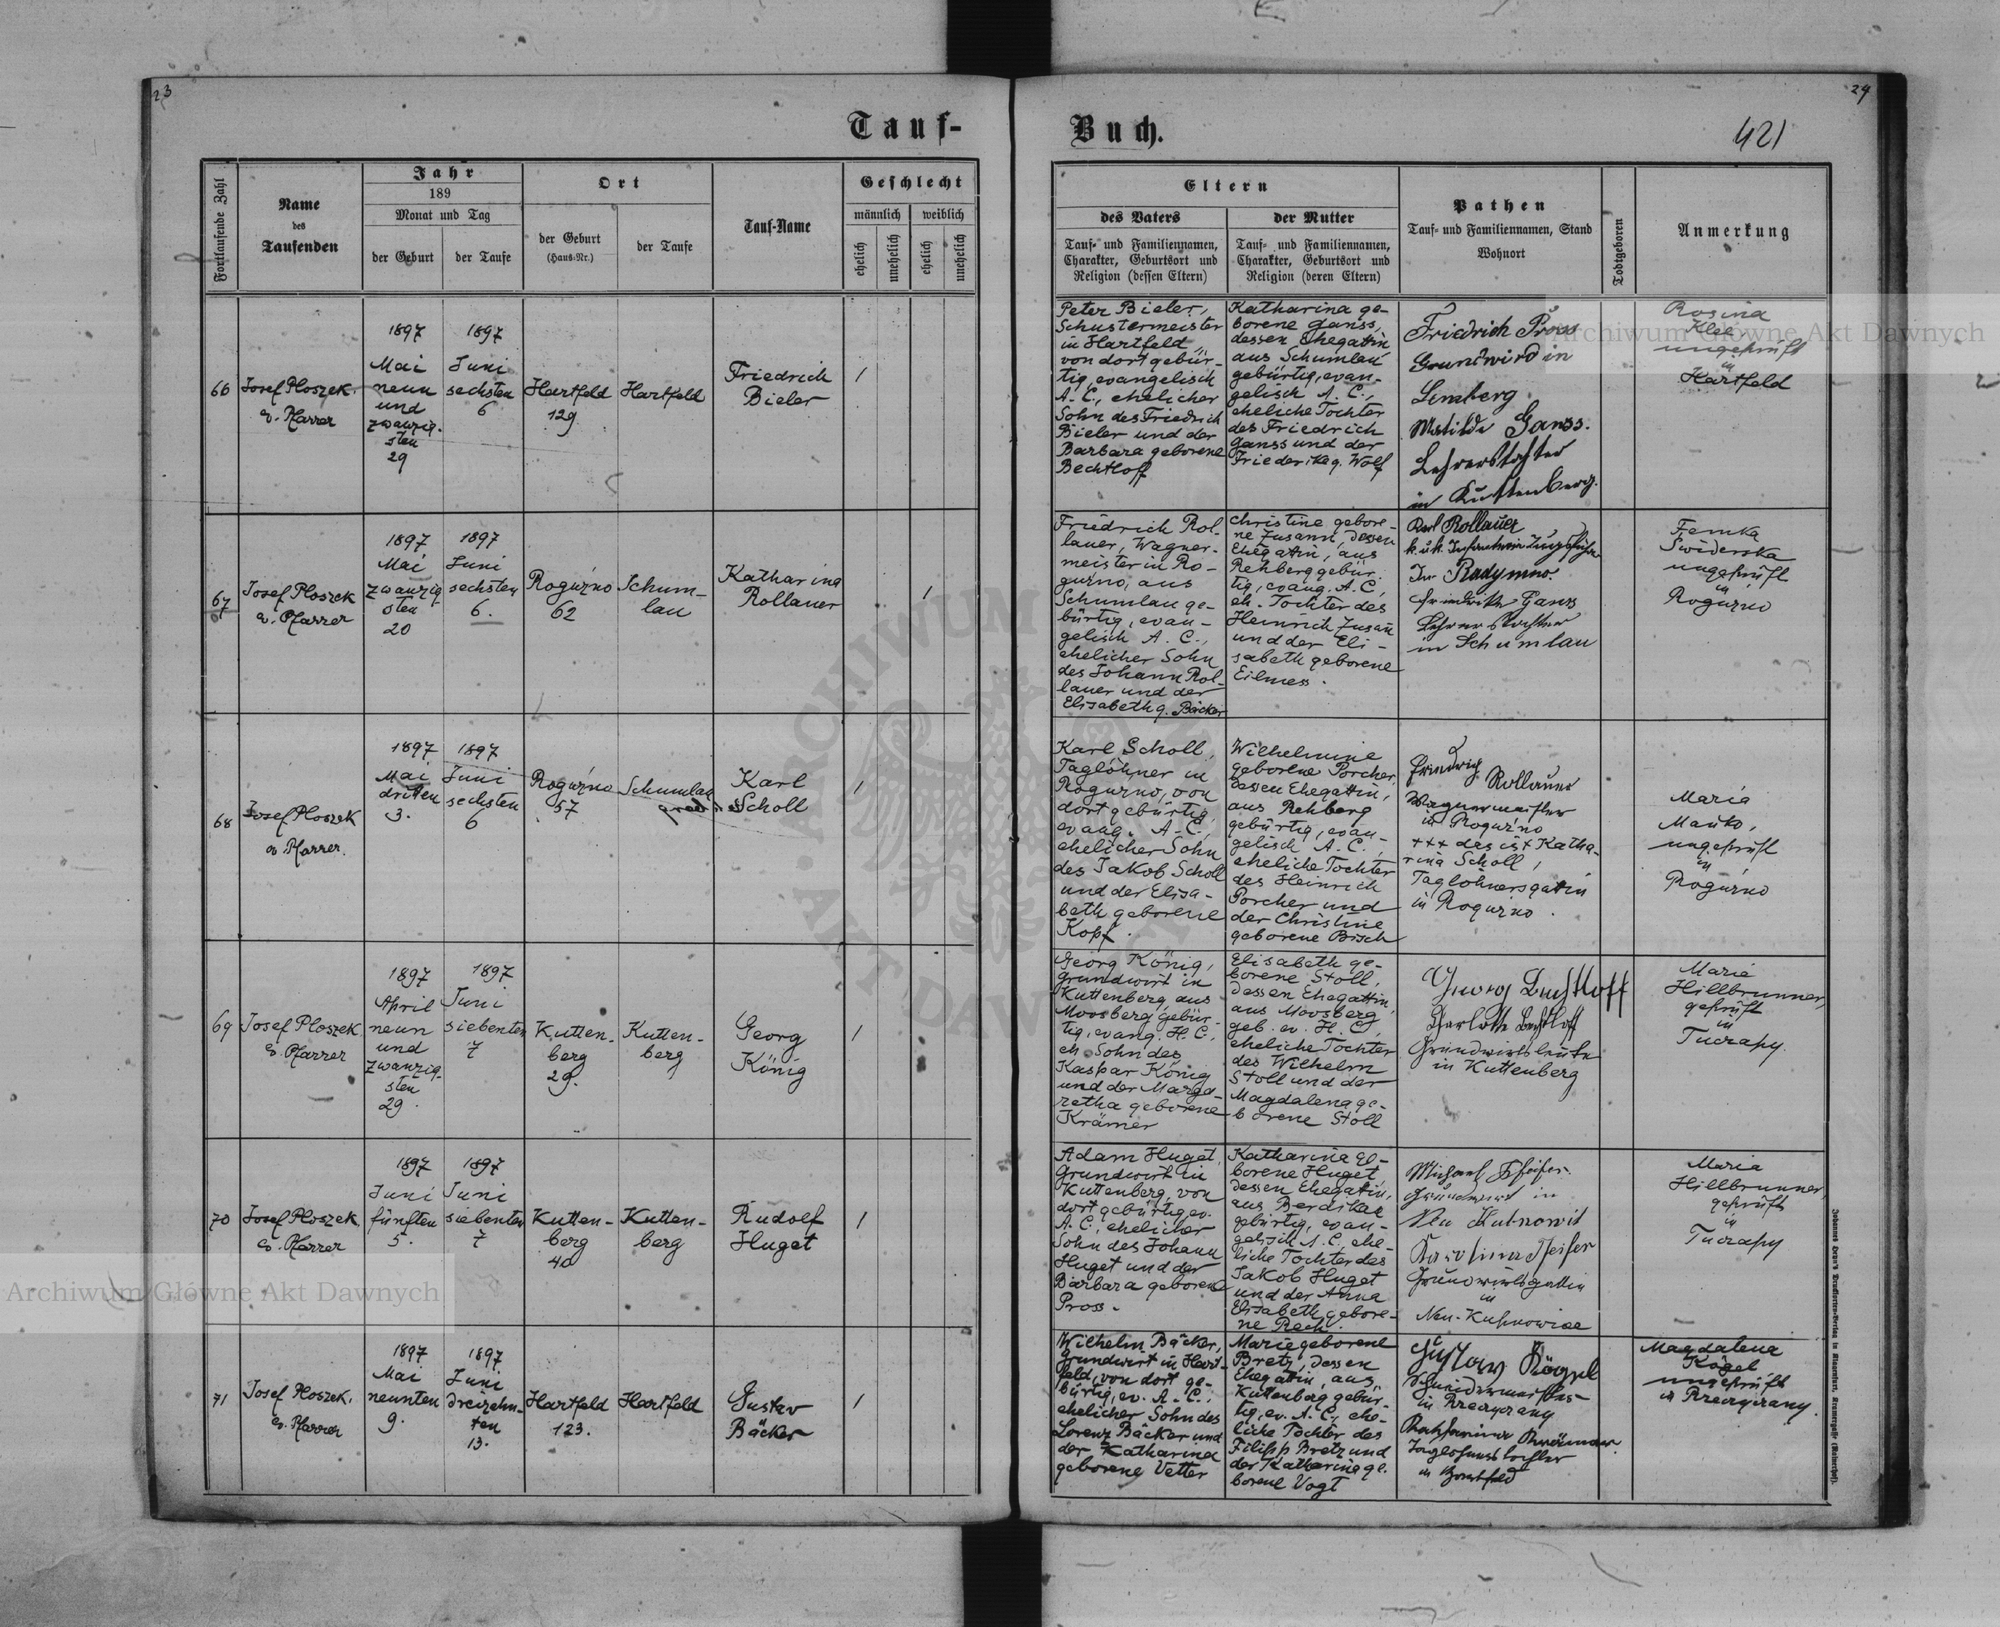 23
24
Tauf-
Buch.
421
Fortlaufende Zahl
Name
des
Taufenden
Jahr
189
Monat und Tag
der Geburt
der Taufe
Ort
der Geburt
(Haus-Nr.)
der Taufe
Tauf-Name
Geschlecht
männlich
weiblich
ehelich
unehelich
ehelich
unehelich
Eltern
des Vaters
Tauf- und Familiennamen,
Charakter, Geburtsort und
Religion (dessen Eltern)
der Mutter
Tauf- und Familiennamen,
Charakter, Geburtsort und
Religion (deren Eltern)
Pathen
Tauf- und Familiennamen, Stand
Wohnort
Todtgeboren
Anmerkung
66
Josef Ploszek
ev. Pfarrer
1897
Mai
neun
und
zwanzig-
sten
29
1897
Juni
sechsten
6
Hartfeld
129
Hartfeld
Friedrich
Bieler
1
Peter Bieler,
Schustermeister
in Hartfeld
von dort gebür-
tig, evangelisch
A. C., ehelicher
Sohn des Friedrich
Bieler und der
Barbara geborene
Bechtloff
Katharina ge-
borene Ganss,
dessen Ehegattin
aus Schumlau
gebürtig, evan-
gelisch A. C.,
eheliche Tochter
des Friedrich
Ganss und der
Friederike g. Wolf
Friedrich Pross
Grundwird in
Lemberg
Matilde Ganss.
Lehrerstochter
in Kuttenberg.
Rosina
Klee
ungeprüft
in
Hartfeld
67
Josef Ploszek
ev. Pfarrer
1897
Mai
zwanzig-
sten
20
1897
Juni
sechsten
6.
Roguźno
62
Schum-
lau
Katharina
Rollauer
1
Friedrich Rol-
lauer, Wagner-
meister in Ro-
guzno, aus
Schumlau ge-
bürtig, evan-
gelisch A. C.,
ehelicher Sohn
des Johann Rol-
lauer und der
Elisabeth g. Bäcker
Christine gebore-
ne Zusann, dessen
Ehegattin, aus
Rehberg gebür-
tig, evang. A. C,
eh. Tochter des
Heinrich Zusan
und der Eli-
sabeth geborene
Eilmess.
Karl Rollauer
k. u. k. Infanterie Zugsführer
In Radymno.
Friedrike Ganss
Lehrerstochter
in Schumlau
Femka
Swiderska
ungeprüft
in
Roguzno
68
Josef Ploszek
ev. Pfarrer.
1897
Mai
dritten
3.
1897
Juni
sechsten
6
Roguźno
57
Schumlau
Karl
Scholl
1
Karl Scholl,
Taglöhner in
Roguzno, von
dort gebürtig,
evang. A. C,
ehelicher Sohn
des Jakob Scholl
und der Elisa-
beth geborene
Kopf.
Wilhelmine
geborene Porcher,
dessen Ehegattin,
aus Rehberg
gebürtig, evan-
gelisch A. C.
eheliche Tochter
des Heinrich
Porcher und
der Christine
geborene Bisch
Friedrig Rollauer
Wagnermeister
in Roguźno
+++ das ist Katha-
rina Scholl,
Taglöhnersgattin
in Roguzno.
Maria
Mauko,
ungeprüft
in
Roguzno
69
Josef Ploszek
ev. Pfarrer
1897
April
neun
und
zwanzig-
sten
29.
1897
Juni
siebenten
7
Kutten-
berg
29.
Kutten-
berg
Georg
König
1
Georg König,
Grundwirt in
Kuttenberg, aus
Moosberg gebür-
tig, evang. H. C.,
eh. Sohn des
Kaspar König
und der Marga-
retha geborene
Krämer
Elisabeth ge-
borene Stoll,
dessen Ehegattin,
aus Moosberg
geb. ev. H. C,
eheliche Tochter
des Wilhelm
Stoll und der
Magdalena ge-
borene Stoll
Georg Bechtloff
Charlotte Bechtloff
Grundwirtsleute
in Kuttenberg
Maria
Hillbrunner,
geprüft
in
Tuczapy.
70
Josef Ploszek,
ev. Pfarrer
1897
Juni
fünften
5.
1897
Juni
siebenten
7
Kutten-
berg
40
Kutten-
berg
Rudolf
Huget
1
Adam Huget,
Grundwirt in
Kuttenberg, von
dort gebürtig, ev.
A. C., ehelicher
Sohn des Johann
Huget und der
Barbara geborene
Pross.
Katharina ge-
borene Huget,
dessen Ehegattin,
aus Berdikau
gebürtig, evan-
gelisch A. C, ehe-
liche Tochter des
Jakob Huget
und der Anna
Elisabeth gebore-
ne Rech.
Michael Pfeifer
Grundwirt in
Neu Kuhnowit
Karolina Pfeifer
Grundwirtsgattin
in
Neu-Kuhnowice
Maria
Hillbrunner,
geprüft
in
Tuczapy
71
Josef Ploszek,
ev. Pfarrer
1897
Mai
neunten
9.
1897
Juni
dreizehn-
ten
13.
Hartfeld
123.
Hartfeld
Gustav
Bäcker
1
Wilhelm Bäcker,
Grundwirt in Hart-
feld, von dort ge-
bürtig, ev. A. C.,
ehelicher Sohn des
Lorenz Bäcker und
der Katharina
geborene Vetter
Marie geborene
Bretz, dessen
Ehegattin, aus
Kuttenberg gebür-
tig, ev. A. C., ehe-
liche Tochter des
Filipp Bretz und
der Katharina ge-
borene Vogt
Gustaw Kögel
Schneidermeister
in Rzeczyczany
Katharina
Taglöhnerstochter
in Hartfeld
Magdalena
Kögel
ungeprüft
in Rzeczyczany.
Archiwum Główne Akt Dawnych
Archiwum Główne Akt Dawnych